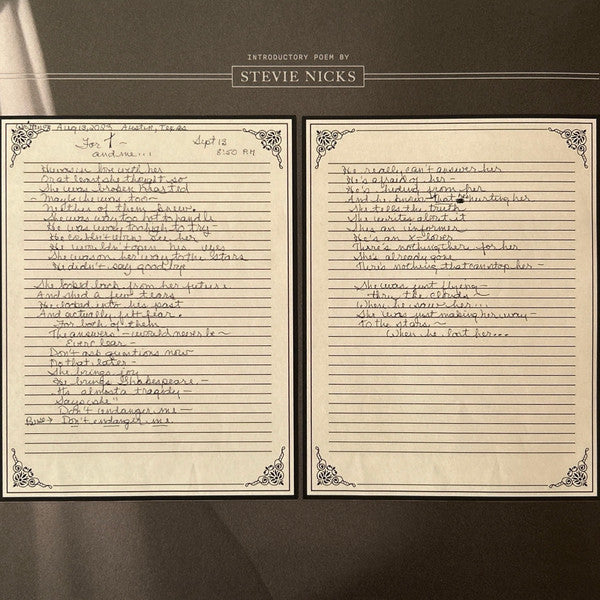 INTRODUCTORY POEM BY
STEVIE NICKS
Written Aug 13, 2023 Austin, Texas
For T ~
and me...
Sept 13
8:50 PM
He was in love with her
Or at least she thought so
She was broken hearted
- Maybe he was too ~
Neither of them knew
She was way too hot to handle
He was way too high to try -
He couldn't even see her
He wouldn't open his eyes
She was on her way to the stars
He didn't say good bye
She looked back from her future
And shed a few tears
He looked into his past
And actually felt fear.
For both of them
The answers ~ would never be ~
Ever clear -
Don't ask questions now
Do that later -
She brings joy
He brings Shakespeare -
It's almost a tragedy -
Says she"
Don't endanger me -
Don't endanger me
He really can't answer her
He's afraid of her -
He's hiding from her
And he knows that hurting her
She tells the truth
She writes about it
She's an informer
He's an x-lover
There's nothing there for her
She's already gone
There's nothing that can stop her -
She was just flying -
thru the clouds ~
When he saw her...
She was just making her way -
to the stars ~
When he lost her...